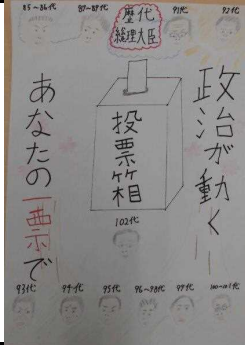 85~86代
87~89代
歴代
総理大臣
91代
92代
政治が動く
投票箱
あなたの一票で
102代
93代
94代
95代
96~98代
99代
100~101代